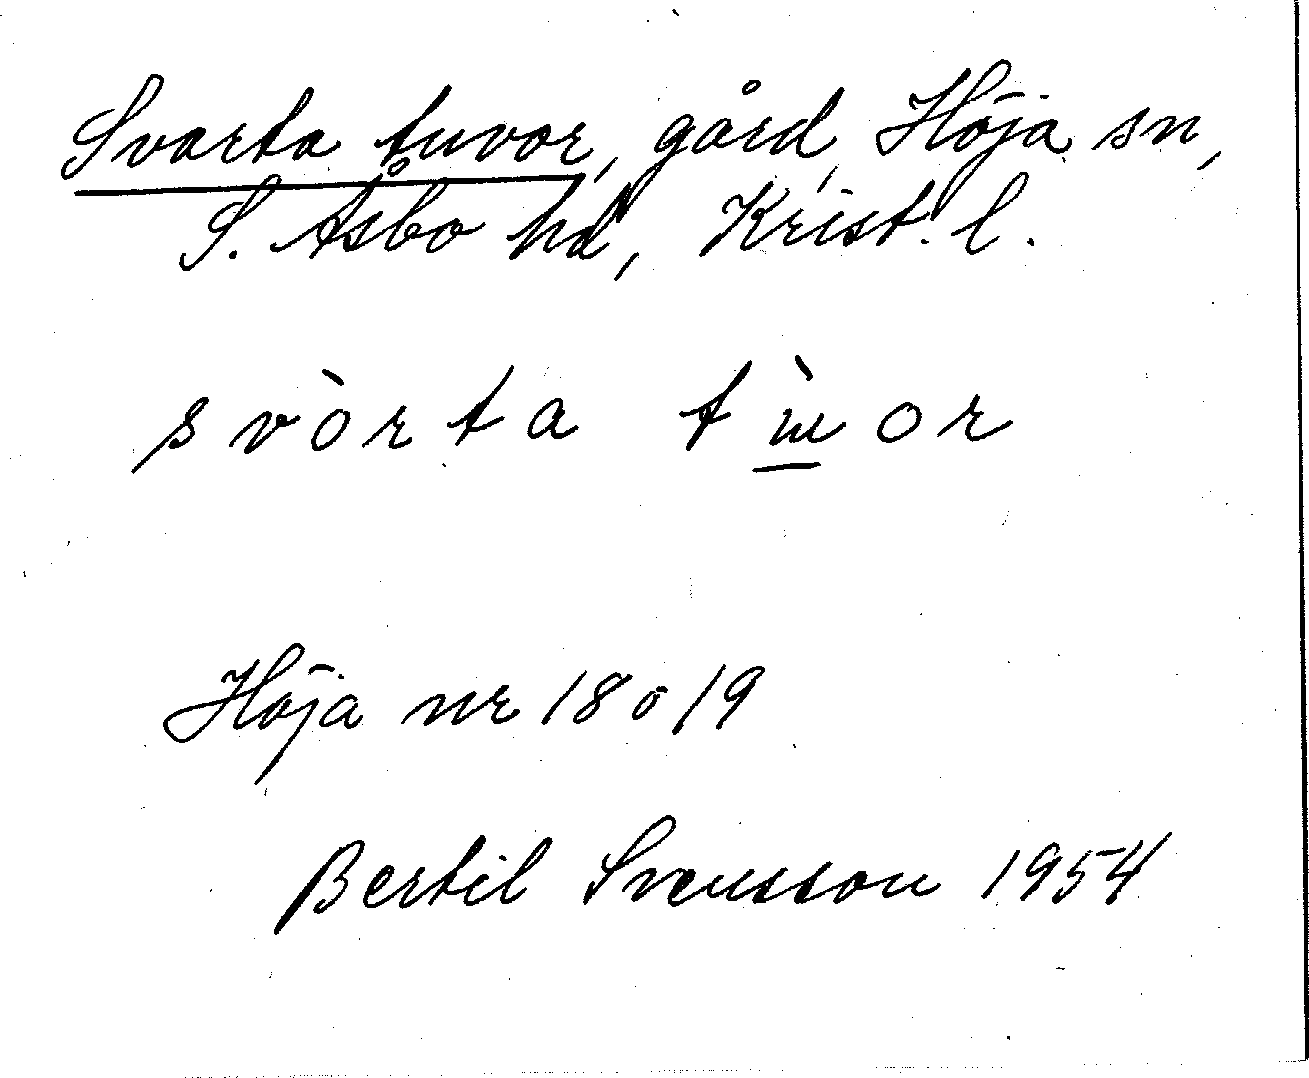 Svarta tuvor, gård, Höja sn,
S. Åsbo hd, Krist. l.
svòrta tɯ̲̀or
Höja nr 18 o 19
Bertil Svensson 1954